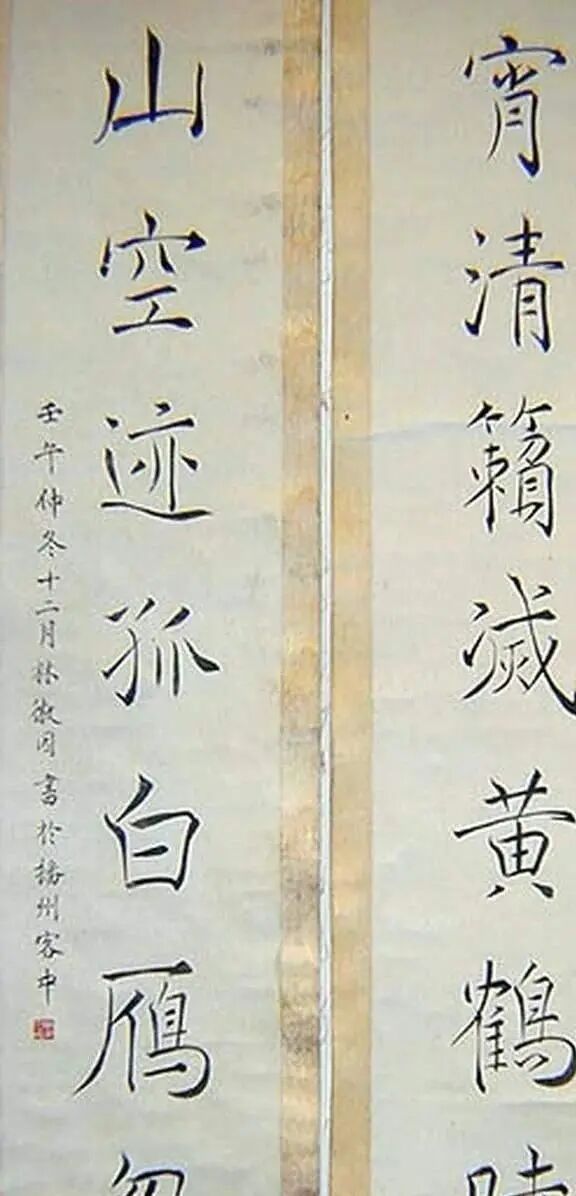 宵清籟滅黄鶴
山空迹孤白鴈
壬午仲冬十二月林徽因書於州客中